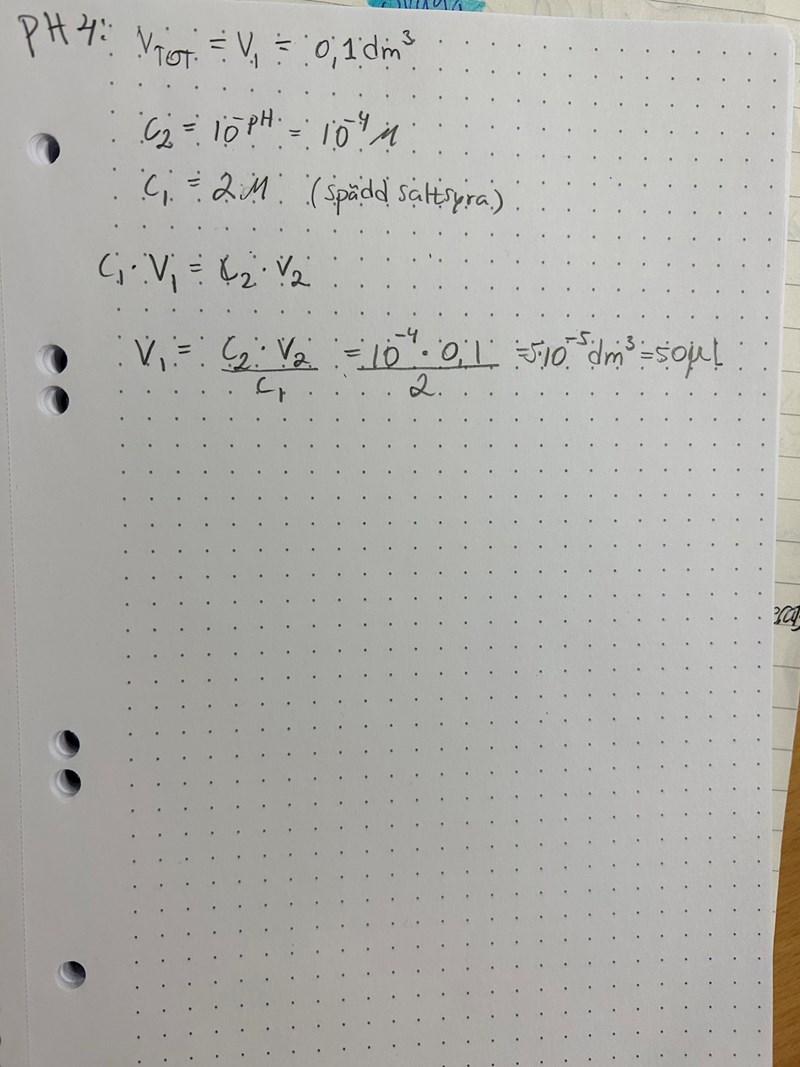 pH 4: V_TOT. = V₁ = 0,1 dm³
C₂ = 10^-pH = 10^-4 M
C₁ = 2 M (spädd saltsyra)
C₁ · V₁ = C₂ · V₂
V₁ = C₂ · V₂ / C₁ = 10^-4 · 0,1 / 2 = 5·10^-5 dm³ = 50 µL